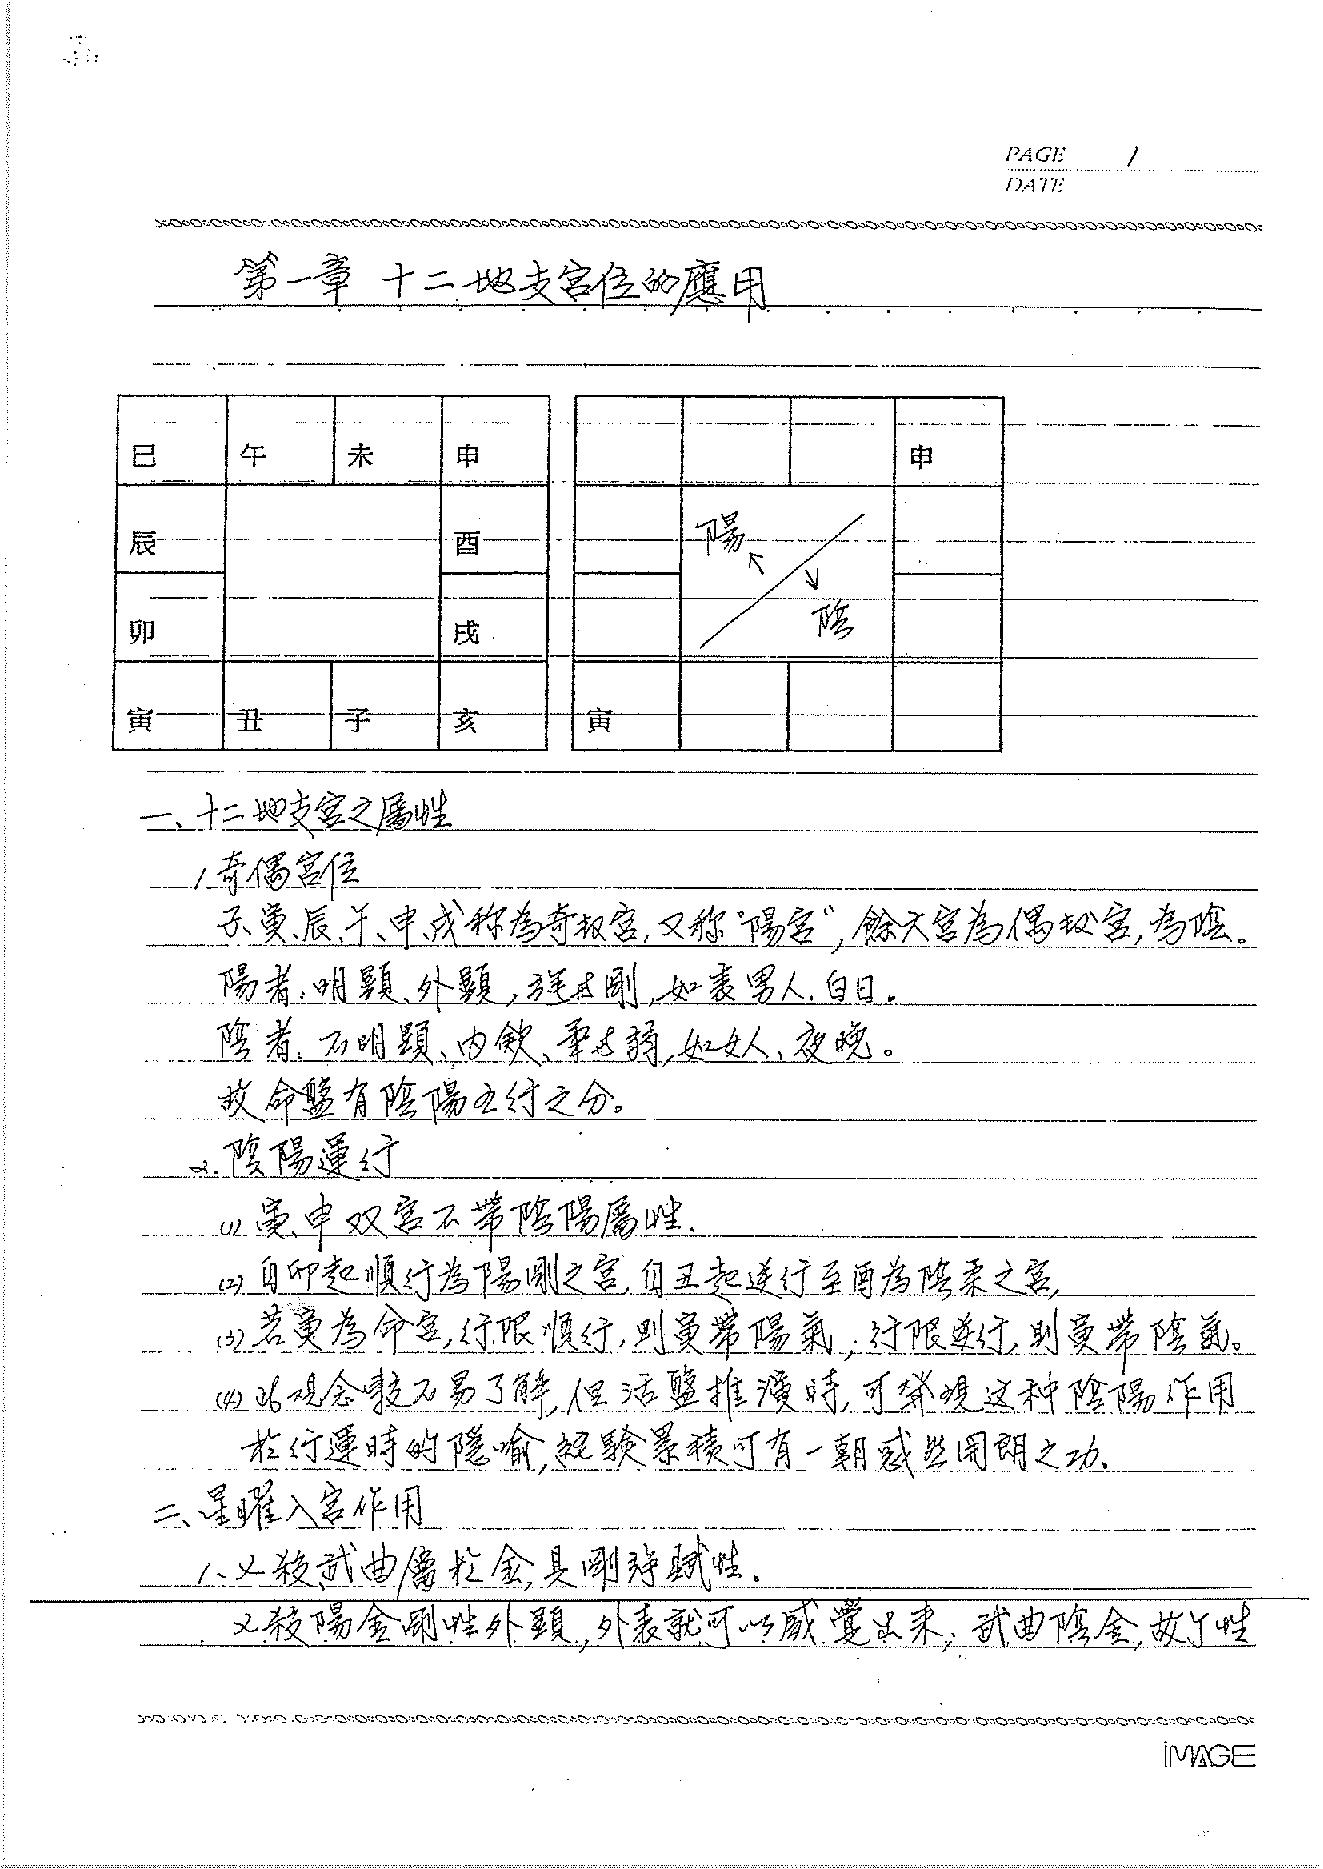 PAGE 1
DATE
第一章 十二地支宮位的應用
巳 午 未 申 申
陽
辰 酉
陰
卯 戌
寅 丑 子 亥 寅
一、十二地支宮之屬性
1.奇偶宮位
子、寅、辰、午、申、戌称為奇数宮,又称"陽宮",餘六宮為偶数宮,為陰。
陽者:明顯、外顯,強与剛,如表男人、白日。
陰者:不明顯、内歛、柔与弱,如女人、夜晚。
故命盤有陰陽五行之分。
2.陰陽運行
(1)寅、申双宮不帶陰陽屬性.
(2)自卯起順行為陽剛之宮,自丑起逆行至酉為陰柔之宮,
(3)若寅為命宮,行限順行,則寅帶陽氣;行限逆行,則寅帶陰氣。
(4)此观念較不易了解,但活盤推演時,可發現这种陰陽作用
於行運時的隱喻,経験累積可有一朝感豁開朗之功.
二、星曜入宮作用
1、乂殺、武曲屬於金,具剛強賦性.
乂殺陽金剛性外顯,外表就可以感覺出来;武曲陰金,故丫性
iMAGE